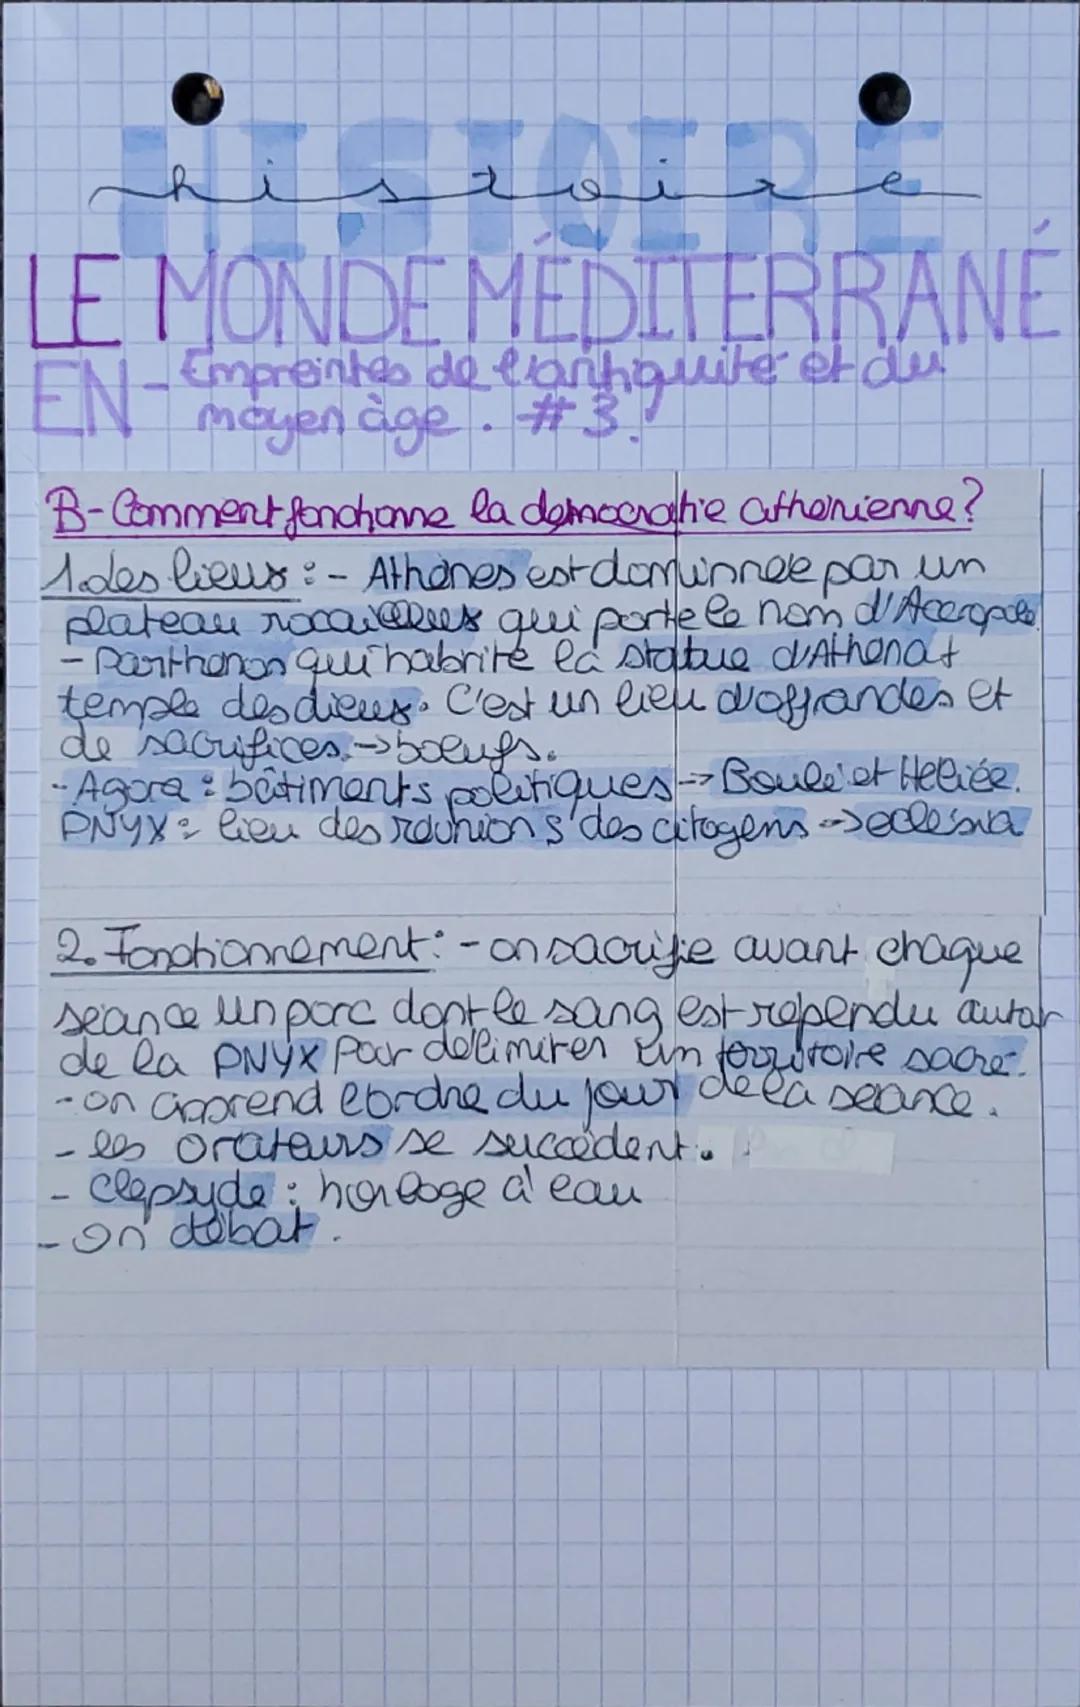 HISTOIRE
histoire
LE MONDE MÉDITERRANÉ
EN - Empreintes de l'antiquité et du
moyen âge. #3.
B- Comment fonctionne la démocratie athénienne?
1. des lieux : - Athènes est dominnée par un
plateau rocailleux qui porte le nom d'Acropole.
- Parthénon qui habrite la statue d'Athéna +
temple des dieux. C'est un lieu d'offrandes et
de sacrifices. → boeufs.
- Agora : bâtiments politiques → Boulé et Héliée.
PNYX : lieu des réunions des citoyens → eclésia
2. Fonctionnement : - on sacrifie avant chaque
séance un porc dont le sang est rependu autour
de la PNYX pour délimiter un territoire sacré.
- on apprend l'ordre du jour de la séance.
- les orateurs se succèdent.
- clepsyde : horloge à eau
- on débat.